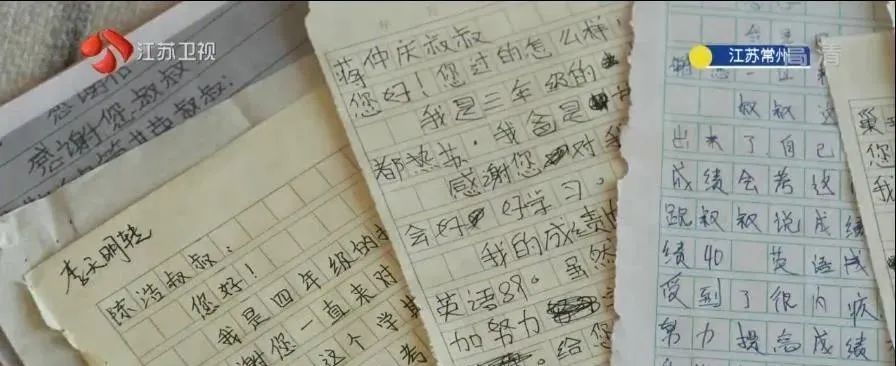 江苏卫视
江苏常州
感谢您叔叔
李天明转
陈浩叔叔:
您好!
我是四年级的
谢您一直来对
这个学其
考
蒋仲庆叔叔
您好!您过的怎么样
我是三年级的
都热苏·我
感谢您 对我
会好 好学习。
我的成绩
英语89。虽然
加努力
给您
叔叔 这
出来了自己
成绩会考
跟叔叔说成绩
绩40 英语成
受到了很 疚
努力提高成绩
您
我